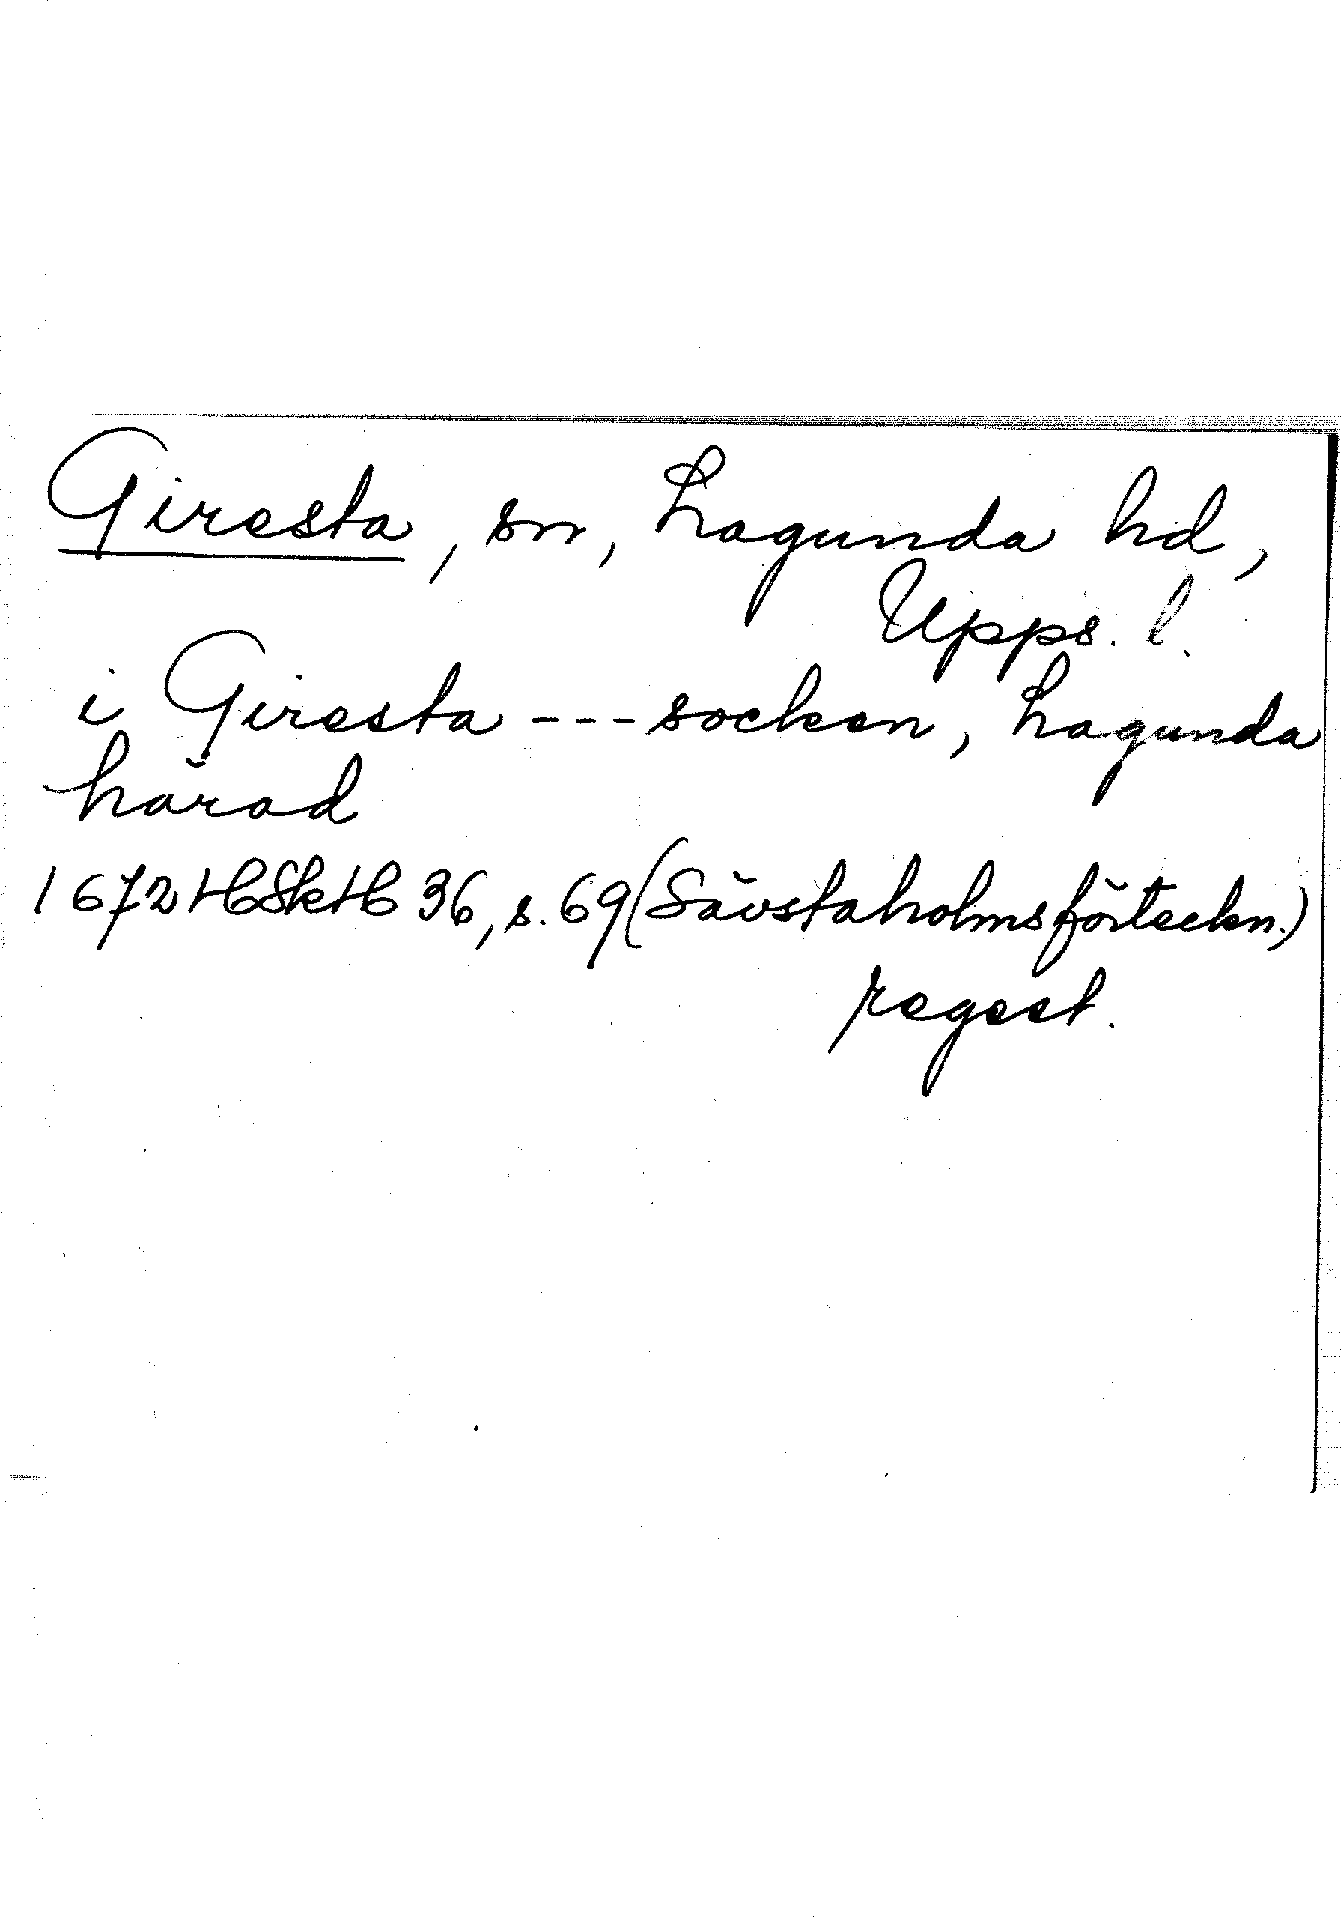 Giresta, sn, Lagunda hd,
Upps. l.
i Giresta --- socken, Lagunda
härad
1672 HSkH 36, s. 69 (Sävstaholmsförteckn.)
regest.